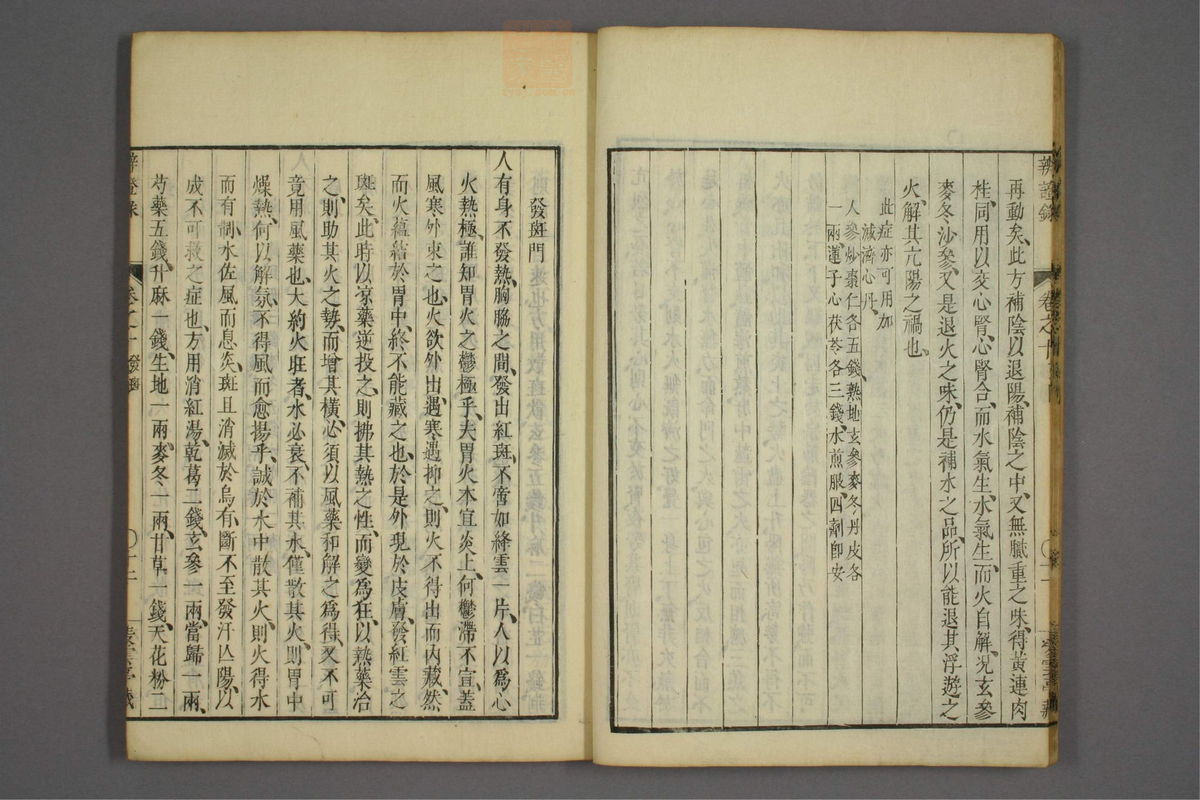 再動矣此方補陰以退陽補陰之中又無膩重之味得黃連肉
桂同用以交心腎心腎合而水氣生水氣生而火自解況玄參
麥冬沙參又是退火之味仍是補水之品所以能退其浮遊之
火解其亢陽之禍也
此症亦可用加
減濟心丹
人參炒棗仁各五錢熟地玄參麥冬丹皮各
一兩蓮子心茯苓各三錢水煎服四劑即安
辨證錄
卷之
發斑門
人有身不發熱胸脇之間發出紅斑不啻如絳雲一片人以爲心
火熱極誰知胃火之鬱極乎夫胃火本宜炎上何鬱滯不宣蓋
風寒外束之也火欲外出遇寒遇抑之則火不得出而內藏然
而火蘊結於胃中終不能藏之也於是外現於皮膚發紅雲之
斑矣此時以凉藥逆投之則拂其熱之性而變爲狂以熱藥治
之則助其火之勢而增其橫必須以風藥和解之爲得又不可
竟用風藥也大約火旺者水必衰不補其水僅散其火則胃中
燥熱何以解氛不得風而愈揚乎誠於水中散其火則火得水
而有制水佐風而息炎斑且消滅於烏有斷不至發汗亾陽以
成不可救之症也方用消紅湯乾葛二錢玄參一兩當歸一兩
芍藥五錢升麻一錢生地一兩麥冬一兩甘草一錢天花粉二